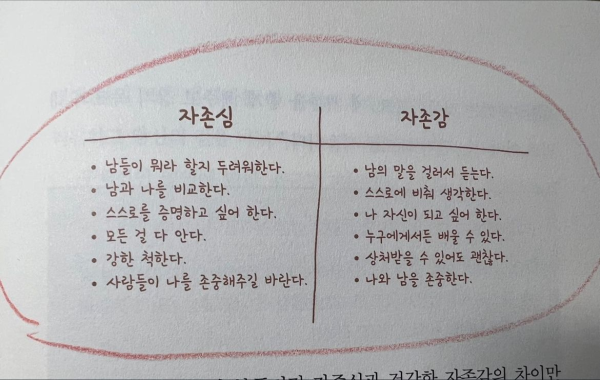 자존심
남들이 뭐라 할지 두려워한다.
남과 나를 비교한다.
스스로를 증명하고 싶어 한다.
모든 걸 다 안다.
강한 척한다.
사람들이 나를 존중해주길 바란다.
자존감
남의 말을 걸러서 듣는다.
스스로에 비춰 생각한다.
나 자신이 되고 싶어 한다.
누구에게서든 배울 수 있다.
상처받을 수 있어도 괜찮다.
나와 남을 존중한다.
자존심과 건강한 자존감의 차이만